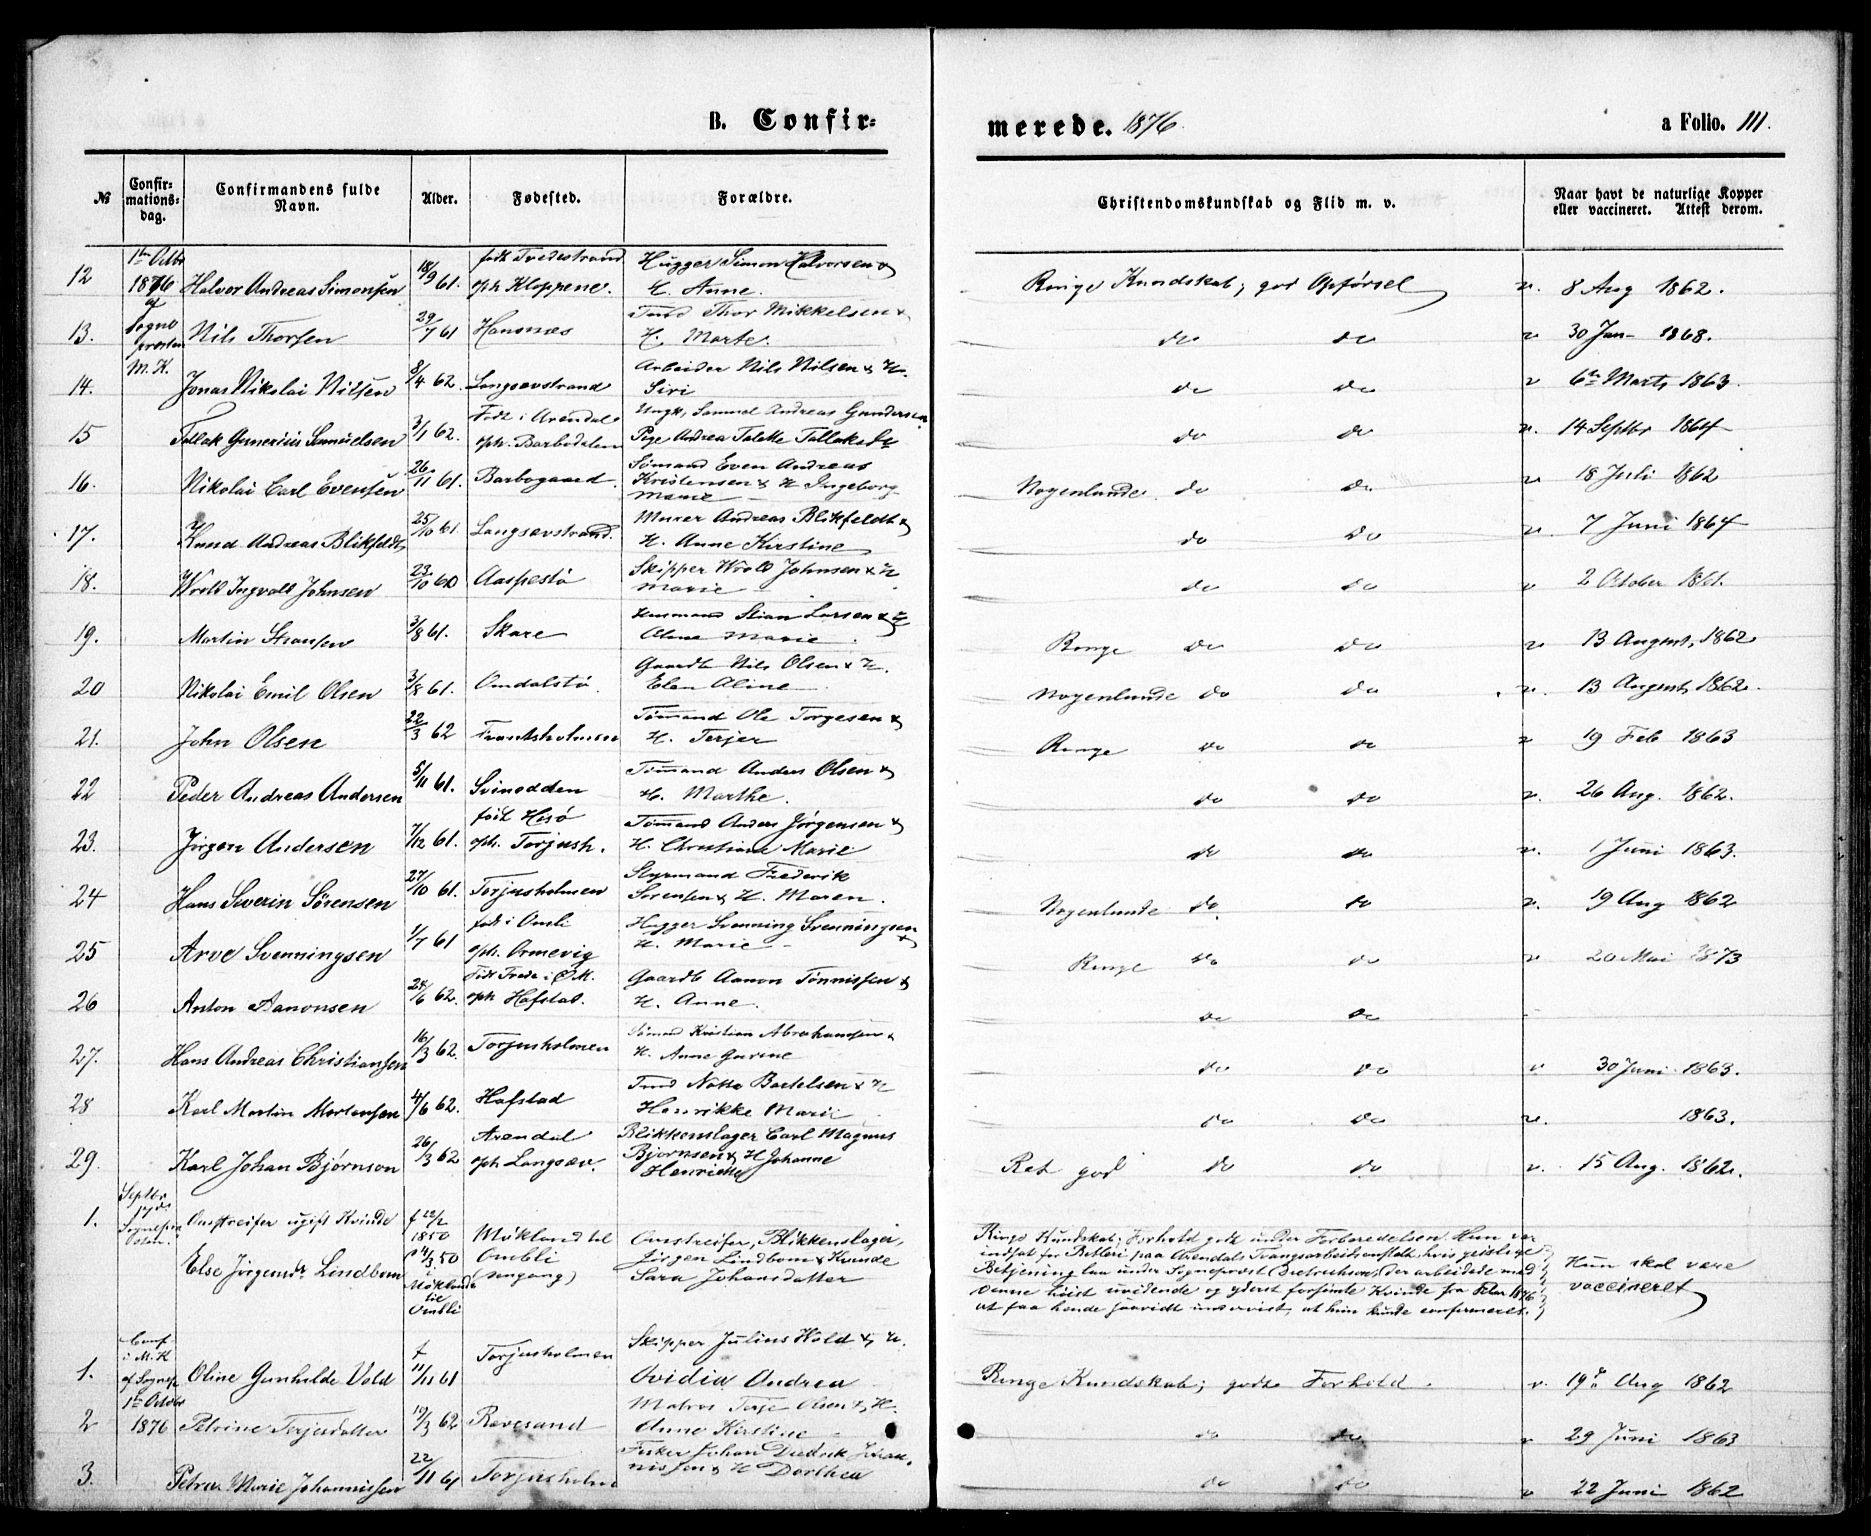 B. Confir=
merede. 1876.
a Folio. 111.
№
Confir-
mations-
dag.
Confirmandens fulde
Navn.
Alder.
Fødested.
Forældre.
Christendomskundskab og Flid m. v.
Naar havt de naturlige Kopper
eller vaccineret. Attest derom.
12 1ste Octbr 1876 af Sogneprosten M. K. Halvor Andreas Simonsen 18/9 61. født Tvedestrand oph Kloppene. Hugger Simon Halvorsen & H. Anne. Ringe Kundskab; god Opførsel v. 8 Aug 1862.
13. Nils Thorsen 29/7 61 Hansnæs Tmd Thor Mikkelsen & H. Marte. do do v 30 Jan 1868.
14. Jonas Nikolai Nilsen 8/4 62. Langsævstrand Arbeider Nils Nilsen & H. Siri do do v 6te Marts 1863.
15 Tallak Gunerius Samuelsen 3/1 62. Født i Arendal oph. Barbodalen Ungk. Samuel Andreas Gundersen Pige Andrea Talette Tallaksdr do do v. 14 Septbr 1864
16. Nikolai Carl Evensen 26/11 61. Barbogaard. Sømand Even Andreas Kristensen & H Ingeborg Marie Nogenlunde do do v 18 Juli 1862
17. Knud Andreas Blikfeldt 25/10 61 Langsævstrand. Murer Andreas Blikfeldt & H. Anne Kirstine do do v. 7 Juni 1864
18. Wroll Ingvall Johnsen 23/10 60 Aaspestø Skipper Wroll Johnsen & H Marie do do v 2 October 1861.
19. Martin Stiansen 3/8 61. Skare Husmand Stian Larsen & H Aline Marie. Ringe do do v 13 August, 1862
20 Nikolai Emil Olsen 3/8 61. Omdalstø. Gaardb Nils Olsen & H. Elen Aline Nogenlunde do do v. 13 August, 1862.
21. John Olsen 22/3 62 Frantsholmen Tømmand Ole Torgesen & H. Terjer Ringe do do v 19 Feb 1863
22 Peder Andreas Andersen 5/11 61. Svinodden Tømmand Anders Olsen & H. Marthe. do do v. 26 Aug. 1862.
23. Jörgen Andersen 7/12 61. født Hisö oph. Torjush. Tømmand Anders Jörgensen & H. Christiane Marie do do v. 1 Juni 1863.
24 Hans Severin Sörensen 27/10 61. Torjusholmen Styrmand Frederik Sörensen & H. Maren. Nogenlunde do. do v. 19 Aug 1862
25 Arve Svenningsen 1/7 61 født i Omli oph. Ormevig Hugger Svenning Svenningsen & H. Marie Ringe do do v 20 Mai 1873
26 Anton Aanonsen 24/6 62. Født Frede i Ø.M. oph Hafstad. Gaardb Aanon Tønnissen & H. Anne. do do
27. Hans Andreas Christiansen 16/3 62. Torjusholmen Sømand Kristian Abrahamsen & H. Anne Gurine do do v 30 Juni 1863.
28 Karl Martin Mortensen 4/6 62. Hafstad Henrikke Marie do do v. 1863.
29. Karl Johan Bjørnson 26/3 62 Arendal oph Langsæv. Blikkenslager Carl Magnus Bjørnsen & H Johanne Henriette Ret god do do v. 15 Aug. 1862.
1. Septbr Omstreifer ugift Kvinde Else Jørgensdr Lindbom f 22/2 1850 14/3 50 i Møkland til Ombli Møkland til Ombli (ungang) Omstreifer, Blikkenslager, Jörgen Lindbom & Kvinde Sara Johansdatter
Ringe Kundskab; Forhold godt under Forberedelsen. Hun var
indsat for Betleri paa Arendals Tvangsarbeidsanstalt, hvis geistlige
Betjening laa under Sogneprost Dietrichson, der arbeidede med
denne høist uvidende og yderst forsømte Kvinde fra Febr 1876
at faa hende saavidt undervist, at hun kunde confirmeret.
Hun skal være
vaccineret
1. Conf i M. K af Sognep 1ste Octobr 1876 Oline Gunhilde Vold f 11/11 61 Torjusholmen Skipper Julius Hold & H. Ovidia Andrea Ringe Kundskab; godt Forhold. v. 19de Aug 1862
2 Petrine Terjesdatter 19/3 62 Revesand Matros Terje Olsen & H. Anne Kirstine do do v 29 Juni 1863
3. Petra Marie Johannissen 22/11 61 Torjusholm Fisker Johan Diedrik Johannissen & H Dorthea do do v 22 Juni 1862